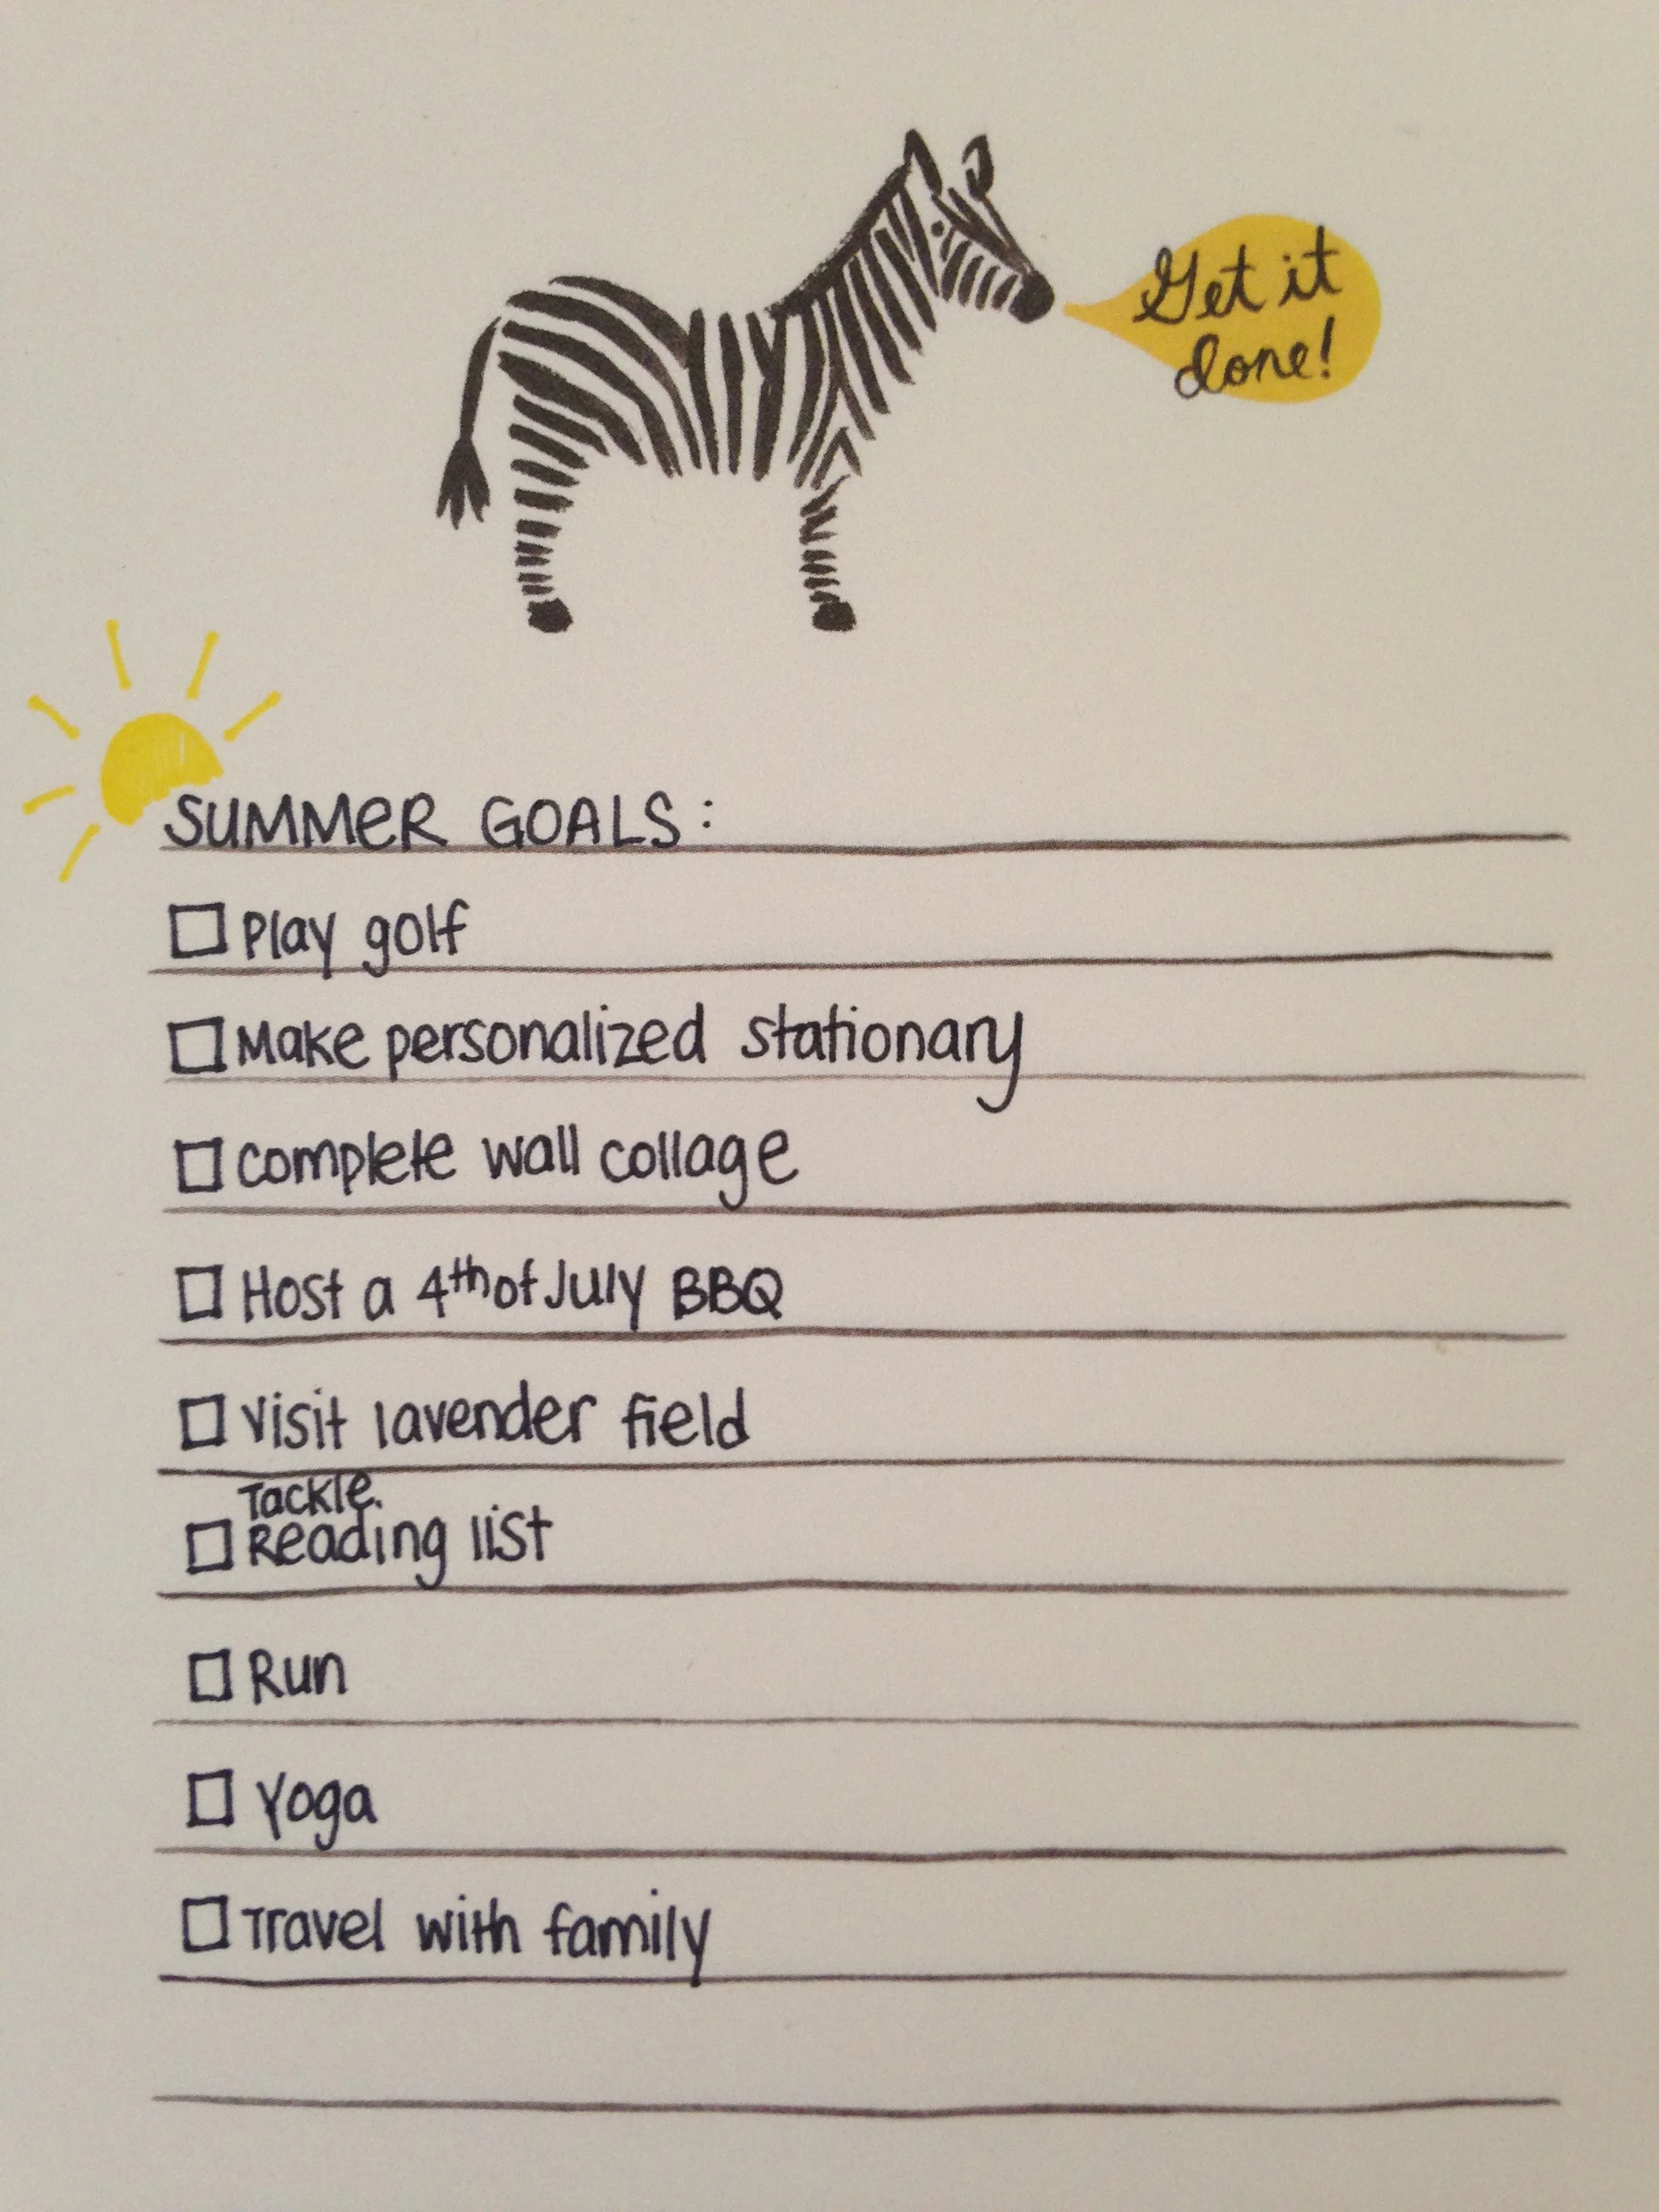 Get it
done!
SUMMER GOALS:
Play golf
Make personalized stationary
complete wall collage
Host a 4th of July BBQ
Visit lavender field
Tackle
Reading list
Run
Yoga
Travel with family